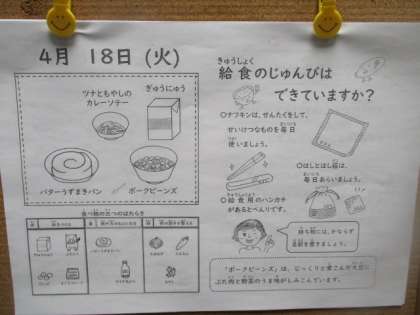 4月 18日 (火)
ツナともやしの
カレーソテー
ぎゅうにゅう
バターうずまきパン
ポークビーンズ
食べ物の三つのはたらき
きゅうしょく
給食のじゅんびは
できていますか?
○ナフキンは、せんたくをして、
せいけつなものを毎日
使いましょう。
○はしとはし箱は、
毎日あらいましょう。
○給食用のハンカチ
があるとべんりです。
持ち物には、かならず
名前を書きましょう。
「ポークビーンズ」は、じっくりと煮こんだ大豆に
ぶた肉と野菜のうま味がしみこんでいます。